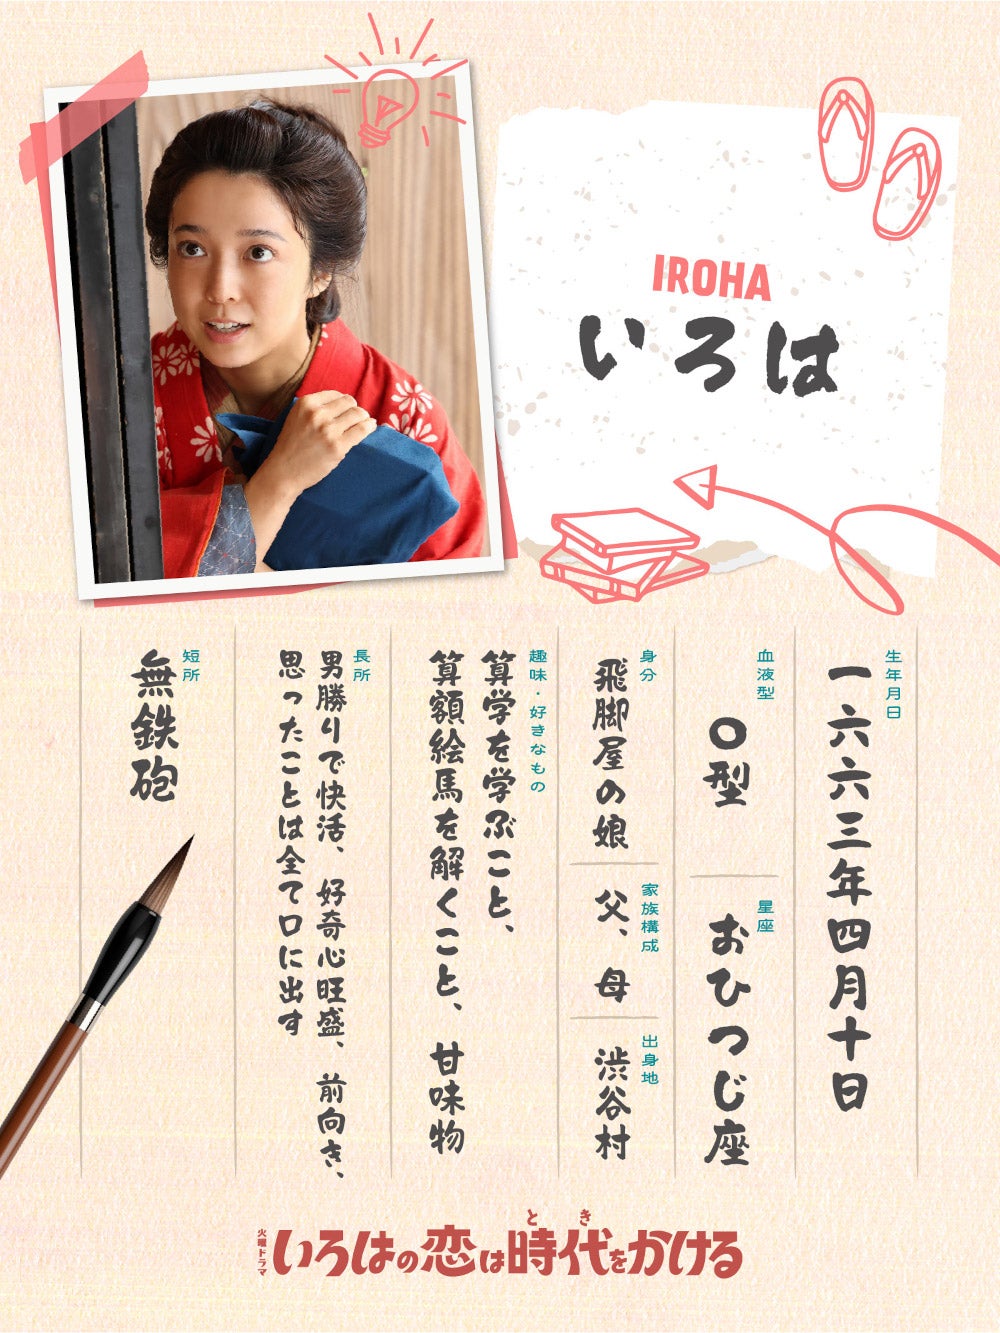 IROHA
いろは
生年月日
一六六三年四月十日
血液型
O型
星座
おひつじ座
身分
飛脚屋の娘
家族構成
父、母
出身地
渋谷村
趣味・好きなもの
算学を学ぶこと、
算額絵馬を解くこと、甘味物
長所
男勝りで快活、好奇心旺盛、前向き、
思ったことは全て口に出す
短所
無鉄砲
火曜ドラマ
いろはの恋は時代をかける
とき